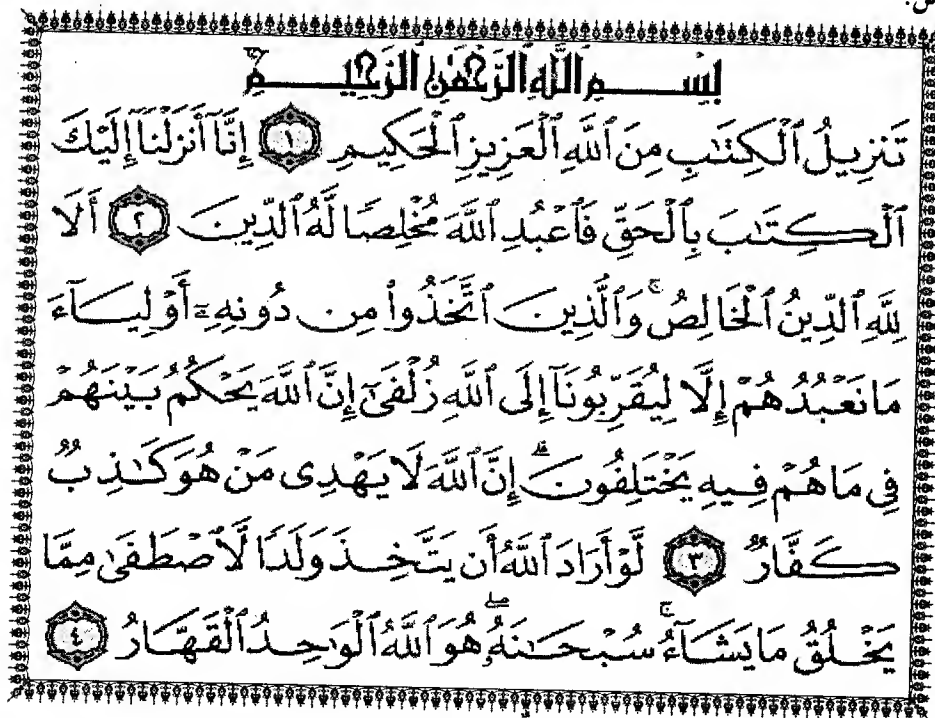 ص.
بِسْمِ ٱللَّهِ ٱلرَّحْمَٰنِ ٱلرَّحِيمِ
تَنزِيلُ ٱلْكِتَٰبِ مِنَ ٱللَّهِ ٱلْعَزِيزِ ٱلْحَكِيمِ ١ إِنَّآ أَنزَلْنَآ إِلَيْكَ
ٱلْكِتَٰبَ بِٱلْحَقِّ فَٱعْبُدِ ٱللَّهَ مُخْلِصًا لَّهُ ٱلدِّينَ ٢ أَلَا
لِلَّهِ ٱلدِّينُ ٱلْخَالِصُ ۚ وَٱلَّذِينَ ٱتَّخَذُوا۟ مِن دُونِهِۦٓ أَوْلِيَآءَ
مَا نَعْبُدُهُمْ إِلَّا لِيُقَرِّبُونَآ إِلَى ٱللَّهِ زُلْفَىٰٓ إِنَّ ٱللَّهَ يَحْكُمُ بَيْنَهُمْ
فِى مَا هُمْ فِيهِ يَخْتَلِفُونَ ۗ إِنَّ ٱللَّهَ لَا يَهْدِى مَنْ هُوَ كَٰذِبٌ
كَفَّارٌ ٣ لَّوْ أَرَادَ ٱللَّهُ أَن يَتَّخِذَ وَلَدًا لَّٱصْطَفَىٰ مِمَّا
يَخْلُقُ مَا يَشَآءُ ۚ سُبْحَٰنَهُۥ ۖ هُوَ ٱللَّهُ ٱلْوَٰحِدُ ٱلْقَهَّارُ ٤